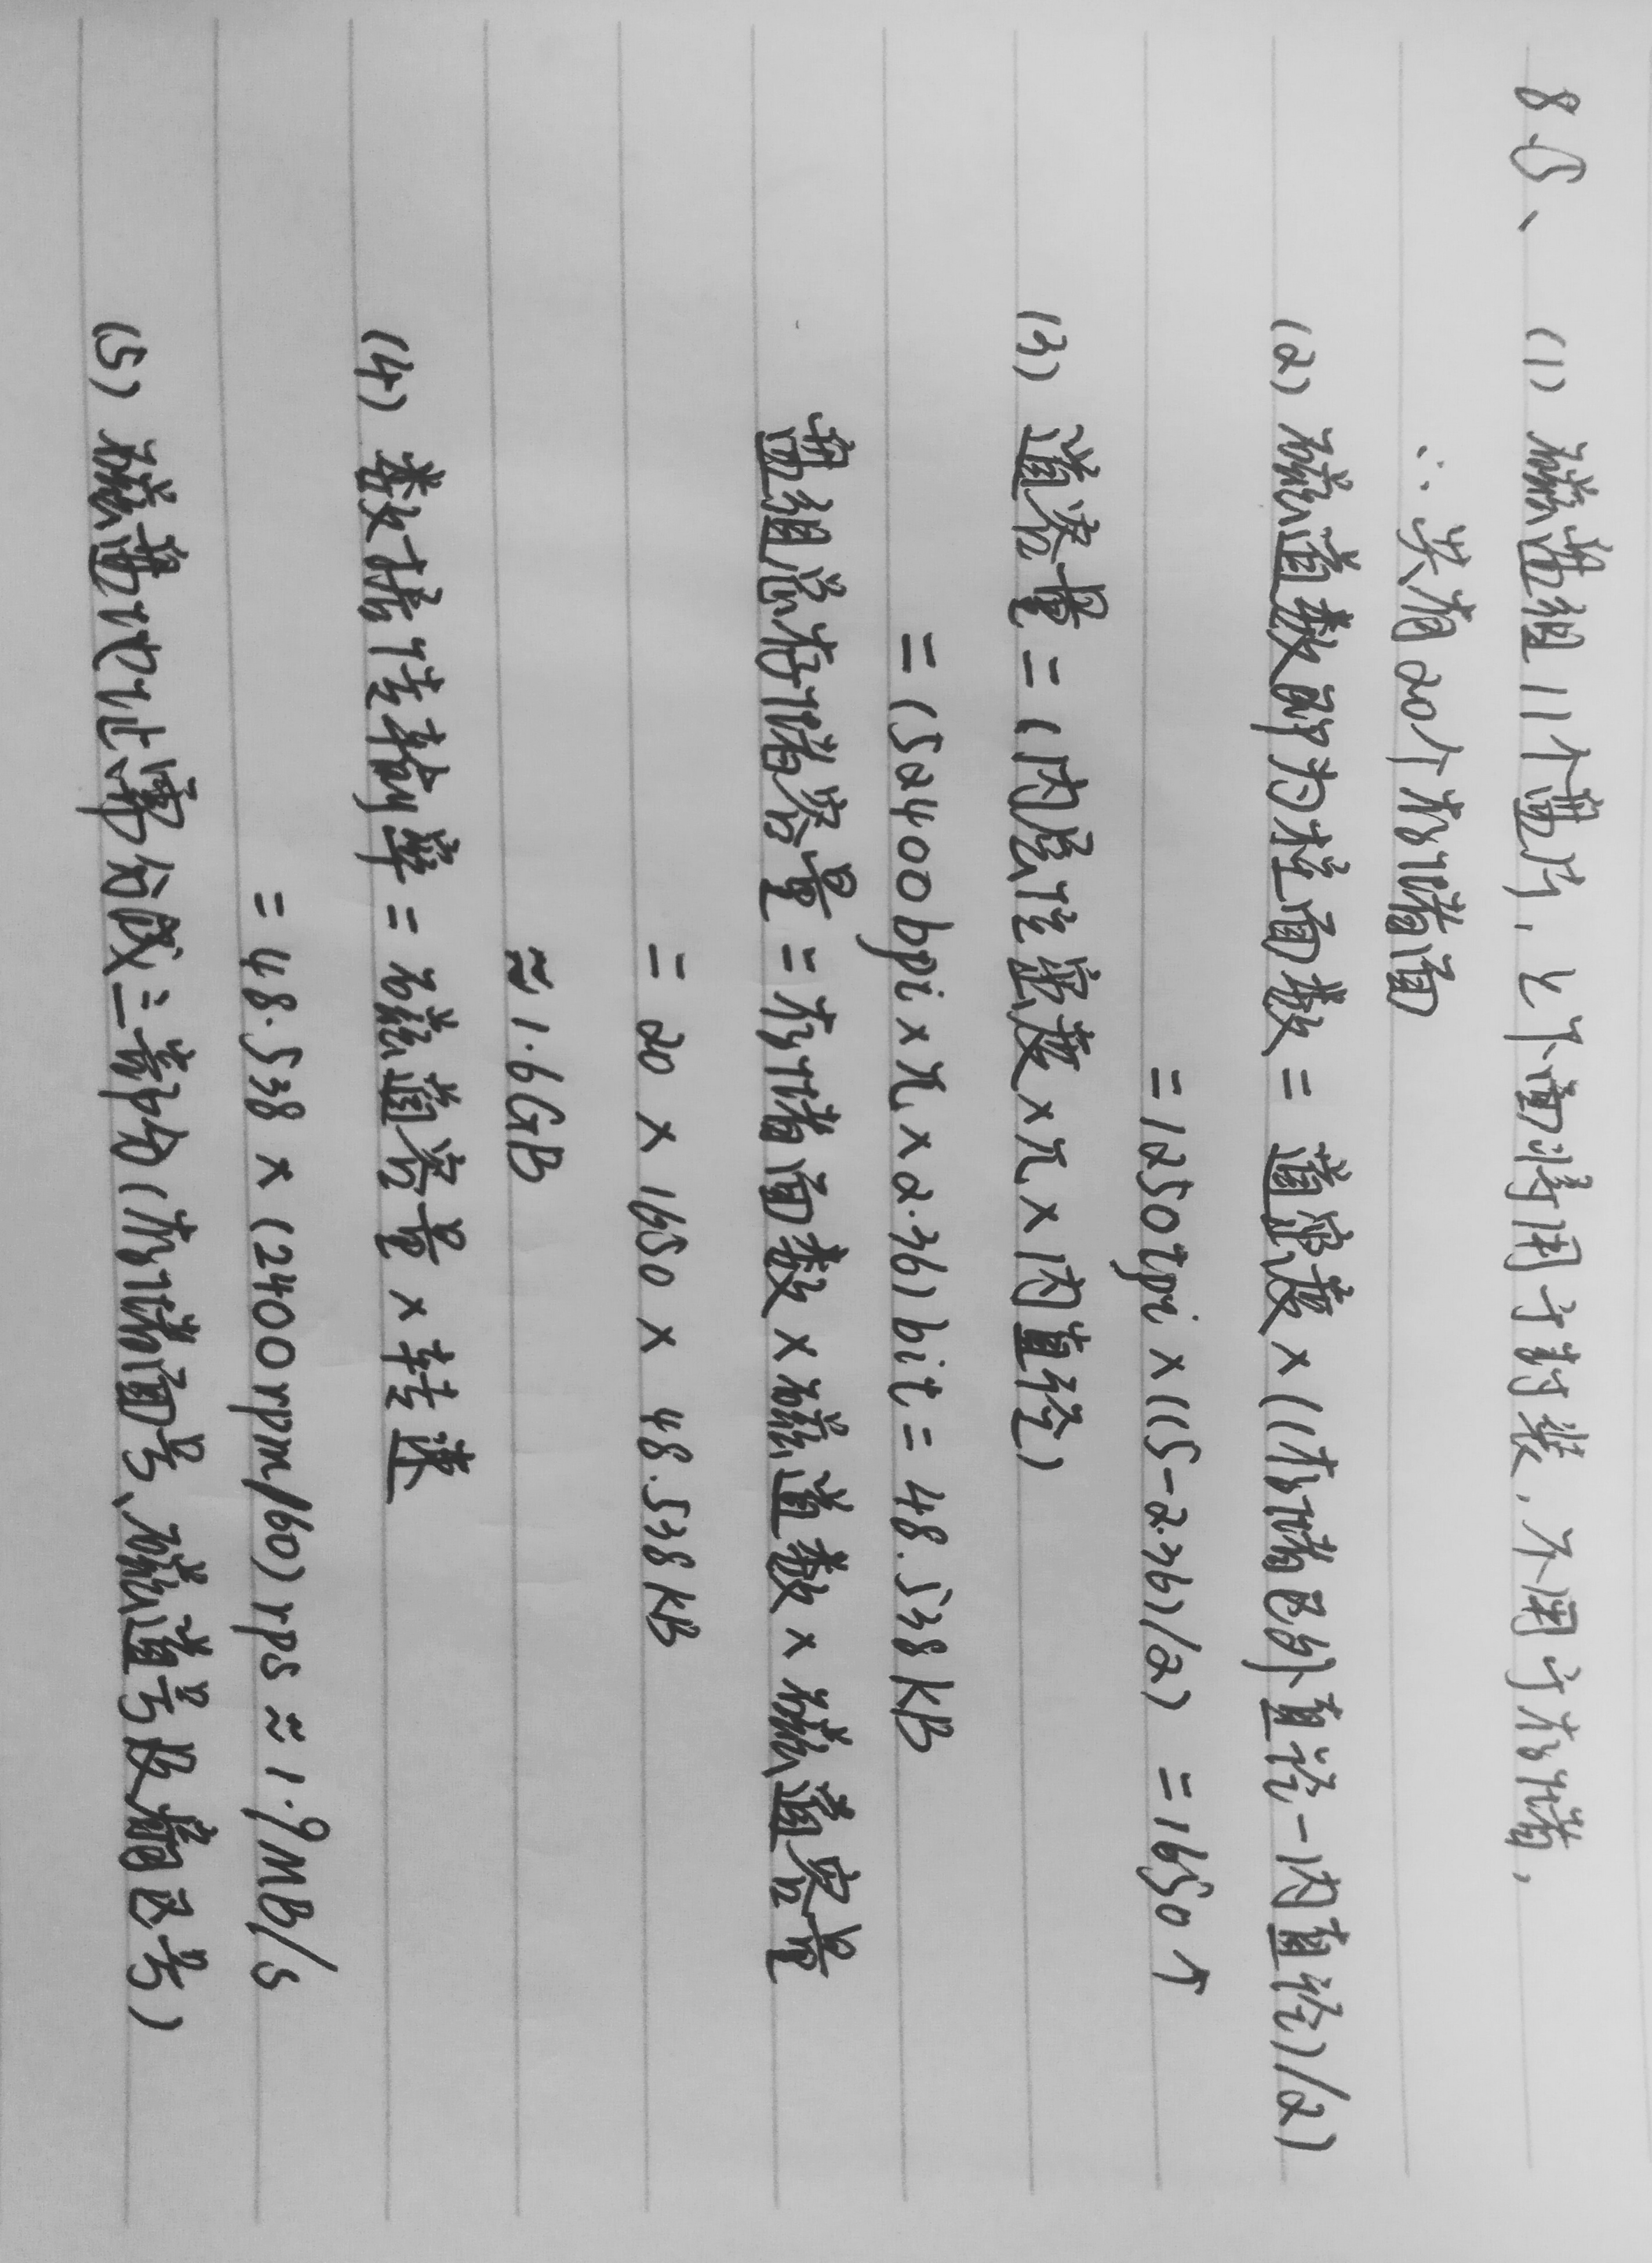 8.5、 (1) 磁盘组11个盘片，上下面将用于封装，不用于存储，
∴ 共有20个存储面
(2) 磁道数即为柱面数 = 道密度×((存储区外直径-内直径)/2)
=1250tpi×((5-2.36)/2) =1650个
(3) 道容量=(内层位密度×π×内直径)
=(52400bpi×π×2.36)bit=48.538KB
盘组总存储容量=存储面数×磁道数×磁道容量
= 20 × 1650 × 48.538KB
≈1.6GB
(4) 数据传输率=磁道容量×转速
=48.538×(2400rpm/60)rps≈1.9MB/s
(5) 磁盘地址需分成三部分(存储面号、磁道号及扇区号)